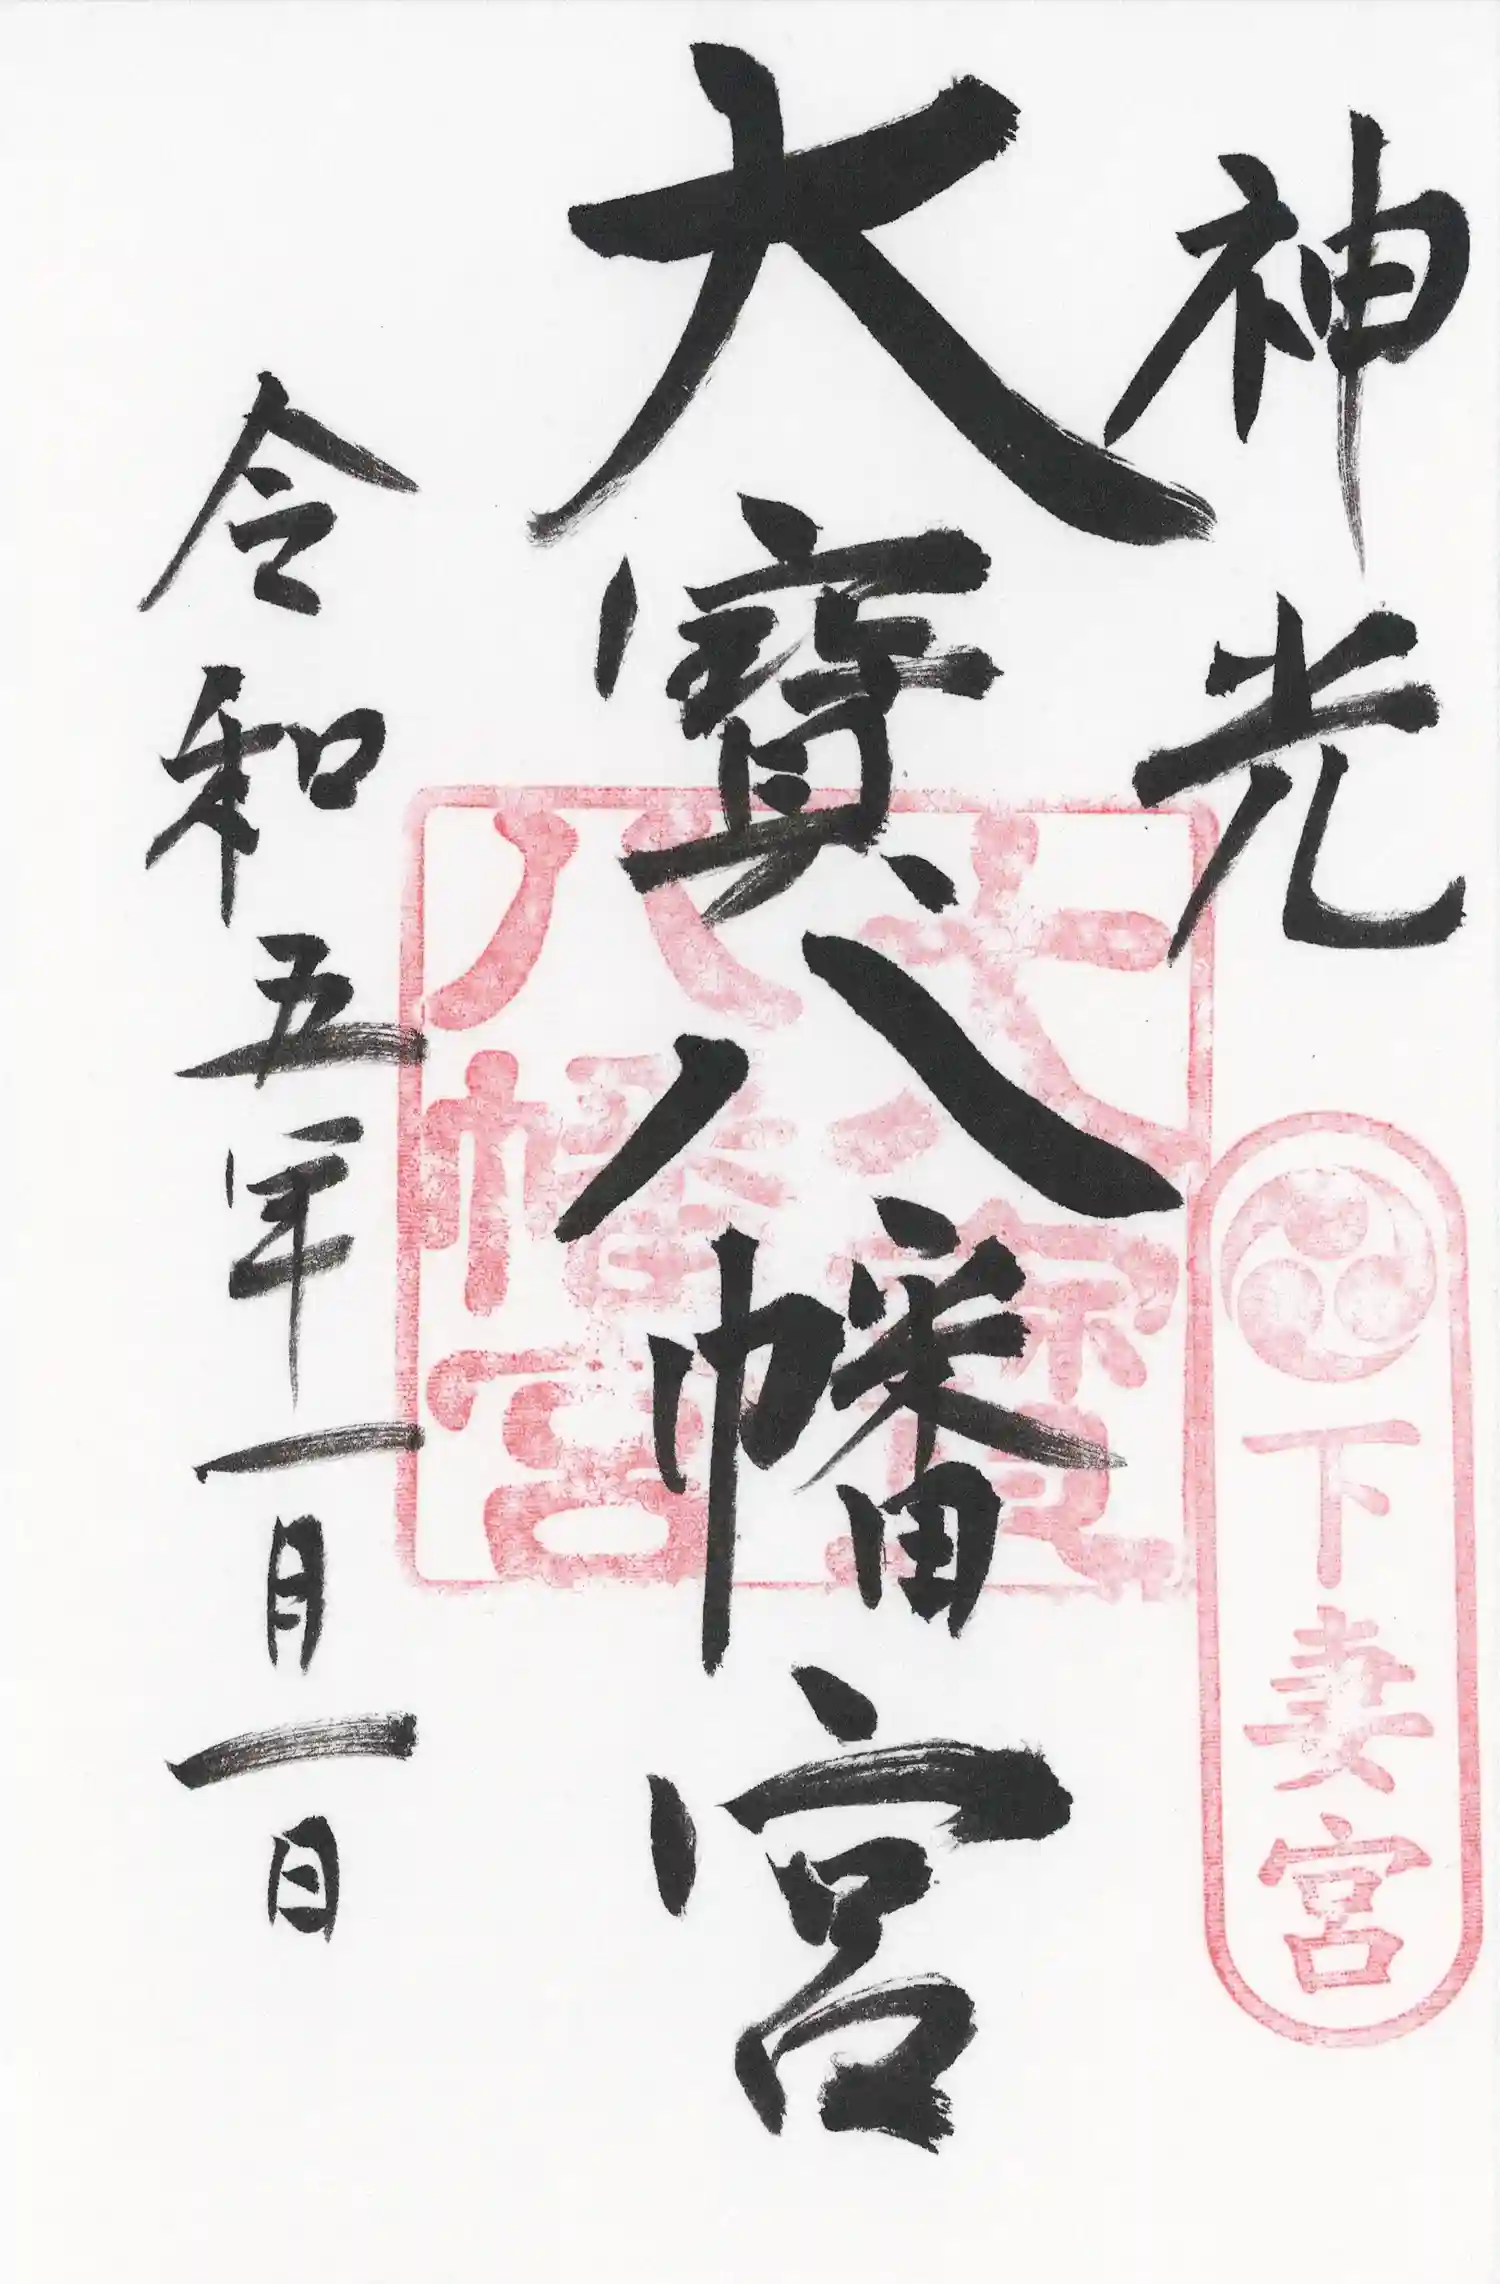 神光
下妻宮
大寶八幡宮
大寳八幡宮
令和五年一月一日